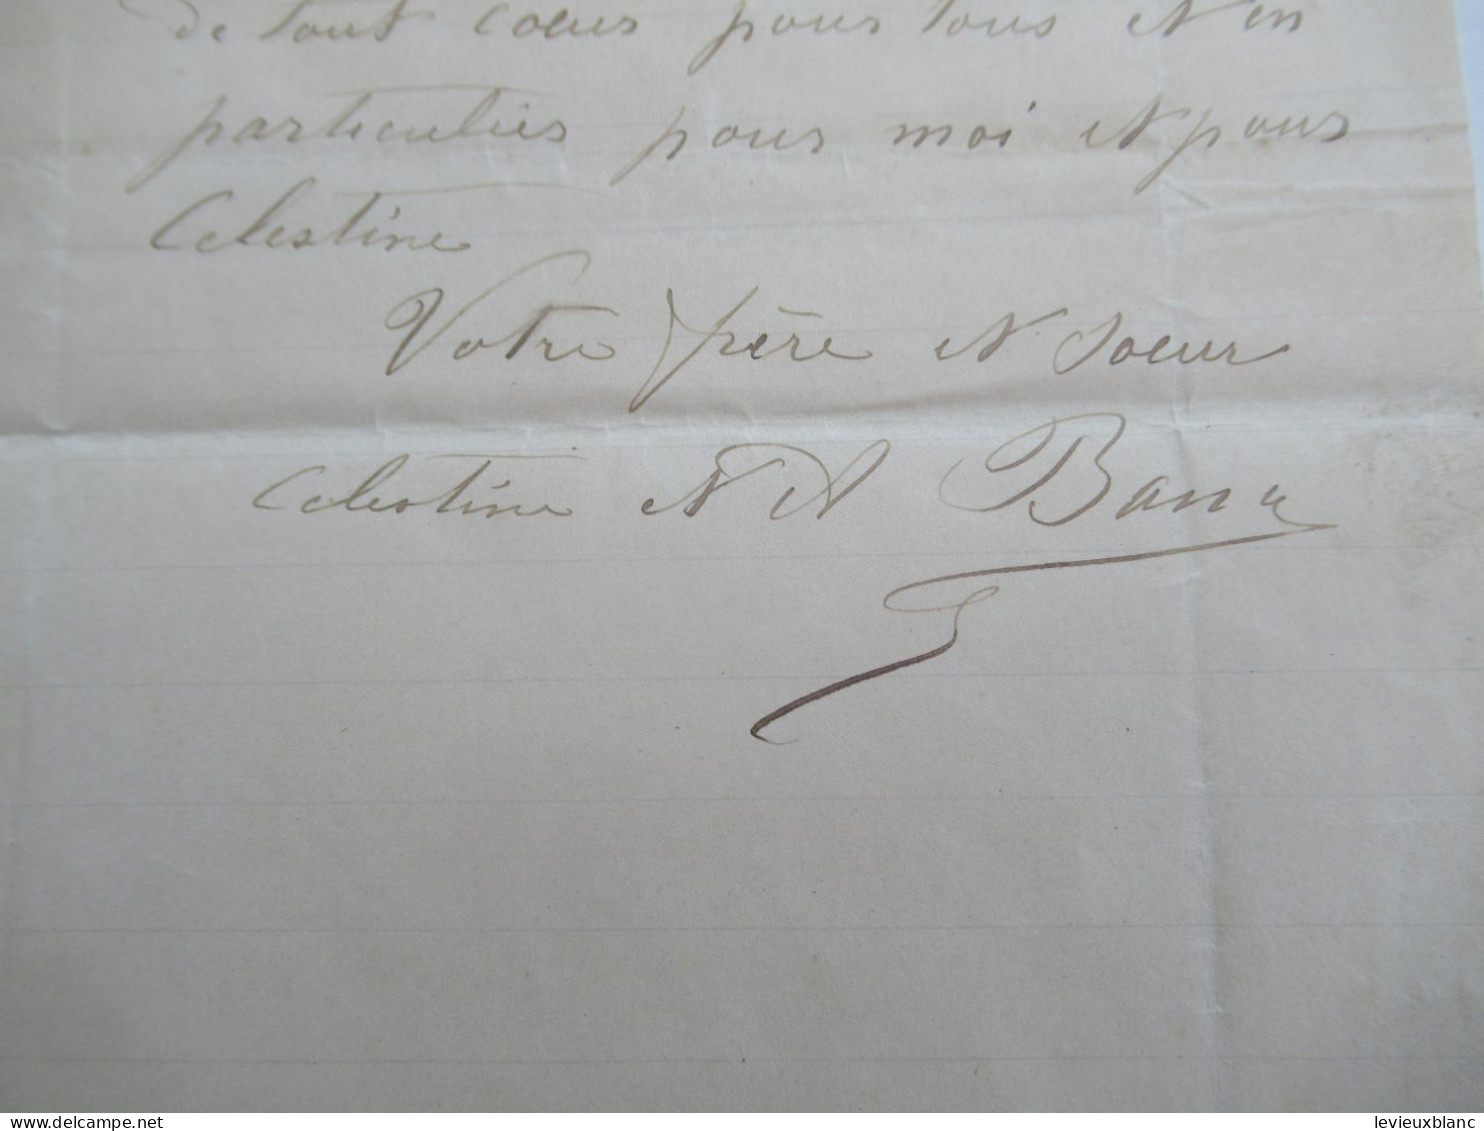 de tout coeur pour tous et en
particulier pour moi et pour
Celestine
Votre frère et Soeur
Celestine et A
levieuxblanc
delcampe.net